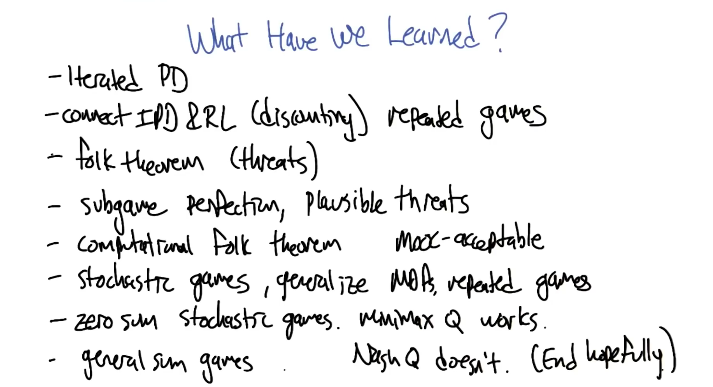 What Have We Learned?
- Iterated PD
- connect IPD & RL (discounting) repeated games
- folk theorem (threats)
- subgame perfection, plausible threats
- computational folk theorem Mooc-acceptable
- stochastic games, generalize MDPs, repeated games
- zero sum stochastic games. minimax Q works.
- general sum games. Nash Q doesn't. (End hopefully)